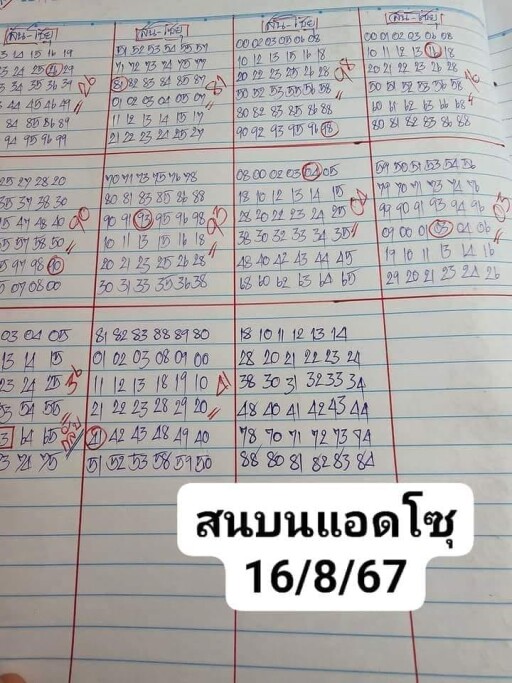 [สัน-โซ้ย]
13 14 15 16 19
23 24 25 26 29
33 34 35 36 39
26
43 44 45 46 49
84 85 86 89
94 95 96 99
[สัน-โซ้ย]
51 52 53 54 55 57
71 72 73 74 75 77
81 82 83 84 85 87
81
01 02 03 04 05 07
11 12 13 14 15 17
21 22 23 24 25 27
[สัน-โซ้ย]
00 02 03 05 06 08
10 12 13 15 16 18
20 22 23 25 26 28
98
50 52 53 55 56 58
80 82 83 85 86 88
90 92 93 95 96 98
[สัน-โซ้ย]
00 01 02 03 06 08
10 11 12 13 16 18
20 21 22 23 26 28
16
50 51 52 53 56 58
60 61 62 63 66 68
80 81 82 83 86 88
25 27 28 20
35 37 38 30
45 47 48 40
90
55 57 58 50
95 97 98 90
05 07 08 00
70 71 73 75 76 78
80 81 83 85 86 88
90 91 93 95 96 98
93
10 11 13 15 16 18
20 21 23 25 26 28
30 31 33 35 36 38
08 00 02 03 04 05
18 10 12 13 14 15
28 20 22 23 24 25
04
38 30 32 33 34 35
48 40 42 43 44 45
68 60 62 63 64 65
59 50 51 53 54 56
79 70 71 73 74 76
99 90 91 93 94 96
03
09 00 01 03 04 06
19 10 11 13 14 16
29 20 21 23 24 26
03 04 05
13 14 15
23 24 25
36
53 54 55
63 64 65
73 74 75
81 82 83 88 89 80
01 02 03 08 09 00
11 12 13 18 19 10
41
21 22 23 28 29 20
41 42 43 48 49 40
51 52 53 58 59 50
18 10 11 12 13 14
28 20 21 22 23 24
38 30 31 32 33 34
48 40 41 42 43 44
78 70 71 72 73 74
88 80 81 82 83 84
สนบนแอดโซุ
16/8/67